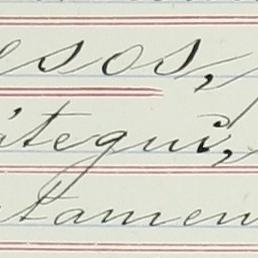 esos,
átegui,
tamen